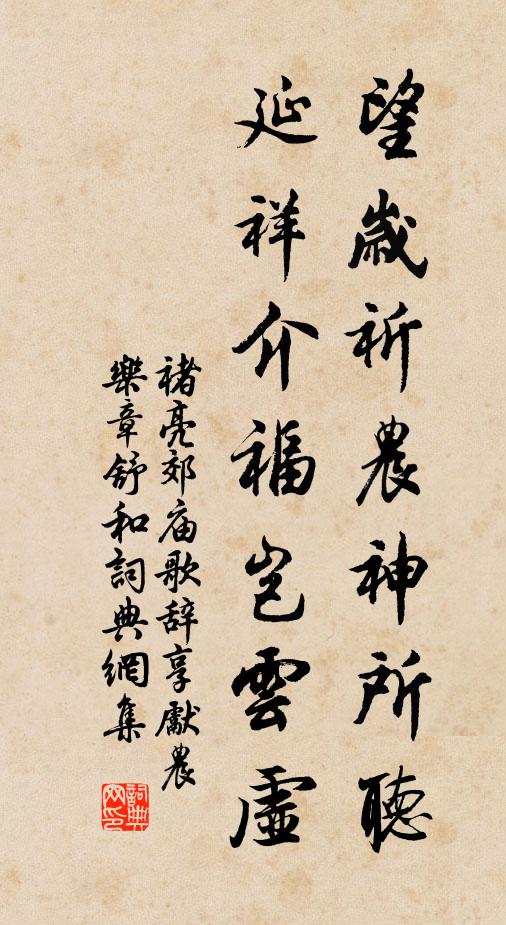 望歲祈農神所聽
延祥介福豈雲虛
褚亮郊庙歌辞享獻農
樂章舒和詞典網集
詞典网印